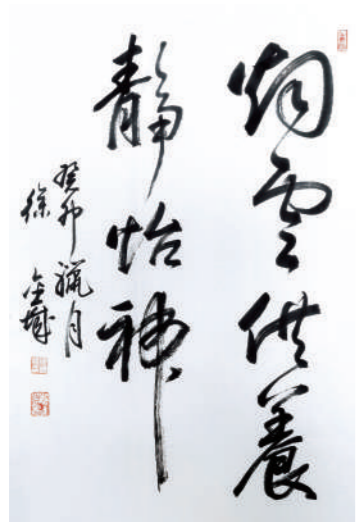 烟雲供養
靜怡神
癸卯臘月
徐金城